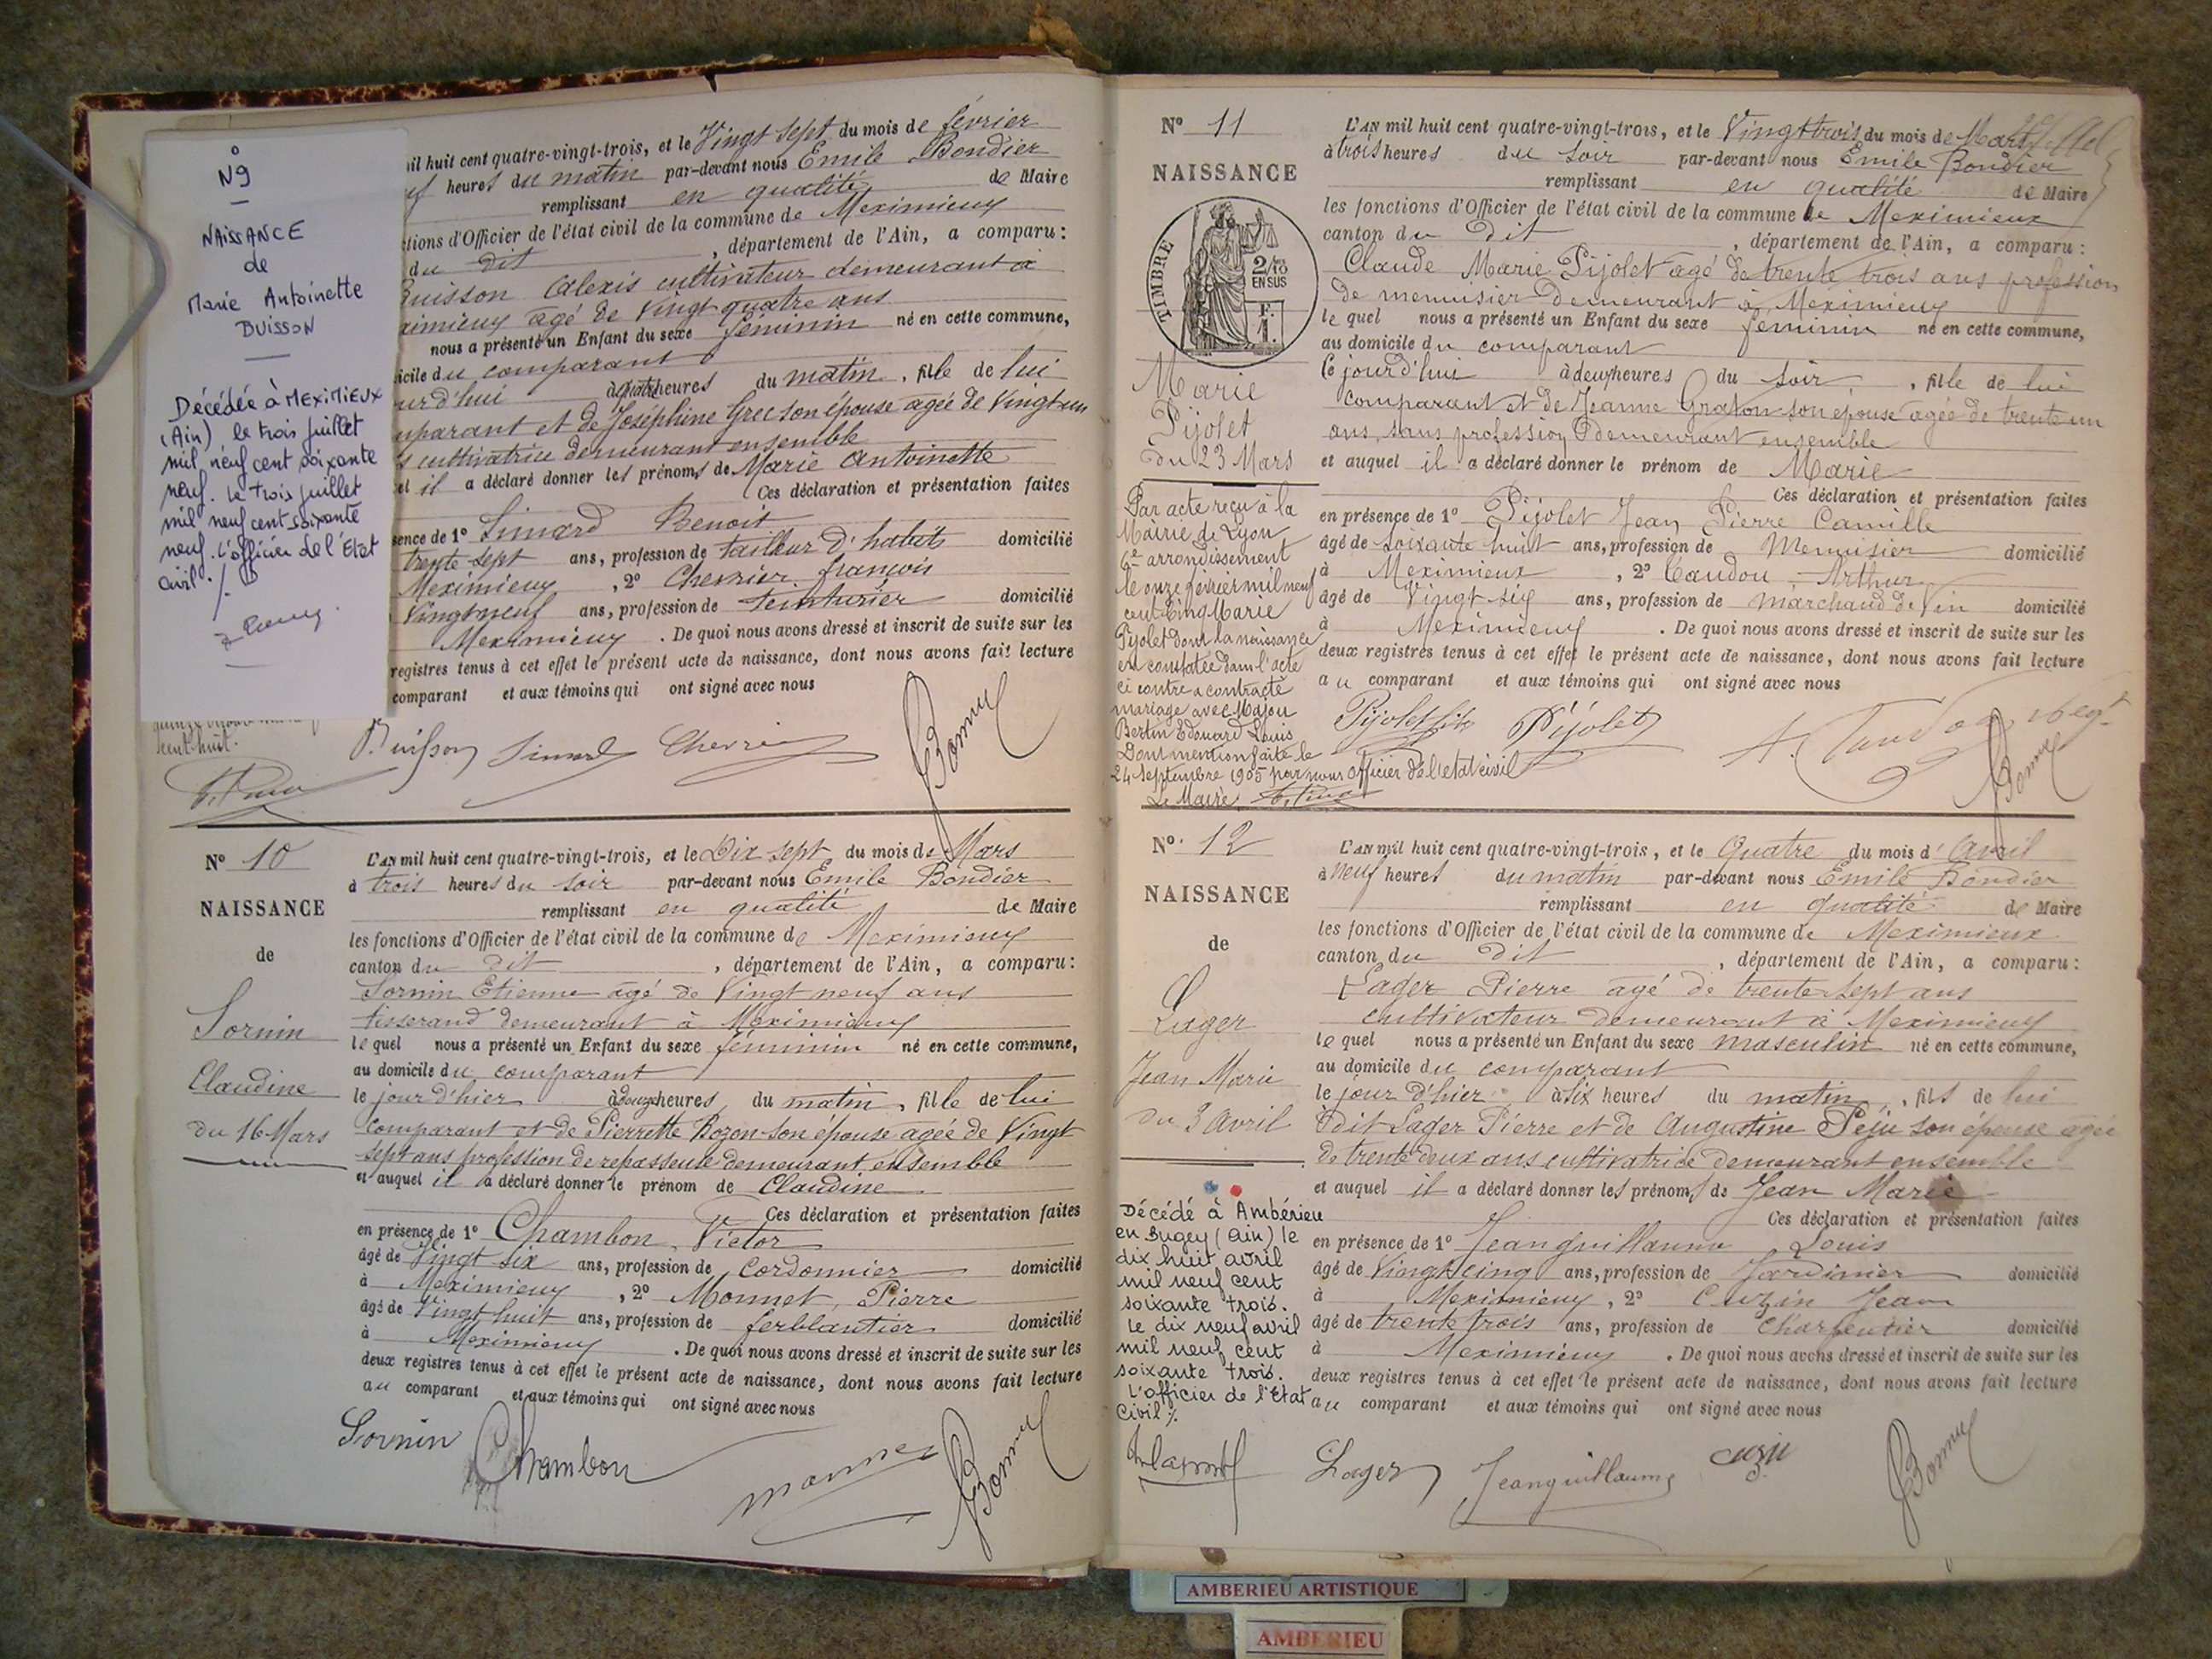 N° 9
NAISSANCE
de
Marie Antoinette
BUISSON
Décédée à MEXIMIEUX
(Ain), le trois juillet
mil neuf cent soixante
neuf. Le trois juillet
mil neuf cent soixante
neuf. L'officier de l'Etat
civil ./.
sent huit.
il huit cent quatre-vingt-trois, et le Vingt sept du mois de février
heures du matin par-devant nous Emile Bondier
remplissant en qualité de Maire
tions d'Officier de l'état civil de la commune de Meximieux
du dit , département de l'Ain, a comparu:
Buisson Alexis cultivateur demeurant à
ximieux agé de Vingt quatre ans
nous a présenté un Enfant du sexe féminin né en cette commune,
icile du comparant
ur d'hui à quatre heures du matin, fille de lui
mparant et de Joséphine Grec son épouse agée de Vingt un
s cultivatrice demeurant ensemble
el il a déclaré donner les prénoms de Marie Antoinette
Ces déclaration et présentation faites
sence de 1° Simard Benoit
trente sept ans, profession de tailleur d'habits domicilié
Meximieux , 2° Chevrier françois
Vingt neuf ans, profession de teinturier domicilié
Meximieux . De quoi nous avons dressé et inscrit de suite sur les
registres tenus à cet effet le présent acte de naissance, dont nous avons fait lecture
comparant et aux témoins qui ont signé avec nous
Buisson Simard Chevrier
N° 10
NAISSANCE
de
Sornin
Claudine
du 16 Mars
L'AN mil huit cent quatre-vingt-trois, et le Dix sept du mois de Mars
à trois heures du soir par-devant nous Emile Bondier
remplissant en qualité de Maire
les fonctions d'Officier de l'état civil de la commune de Meximieux
canton du dit , département de l'Ain, a comparu:
Sornin Etienne agé de Vingt neuf ans
tisserand demeurant à Meximieux
le quel nous a présenté un Enfant du sexe féminin né en cette commune,
au domicile du comparant
le jour d'hier à onze heures du matin, fille de lui
comparant et de Pierrette Bozon son épouse agée de Vingt
sept ans profession de repasseuse demeurant ensemble
et auquel il a déclaré donner le prénom de Claudine
Ces déclaration et présentation faites
en présence de 1° Chambon Victor
âgé de Vingt six ans, profession de Cordonnier domicilié
à Meximieux , 2° Monnet, Pierre
âgé de Vingt huit ans, profession de ferblantier domicilié
à Meximieux . De quoi nous avons dressé et inscrit de suite sur les
deux registres tenus à cet effet le présent acte de naissance, dont nous avons fait lecture
au comparant et aux témoins qui ont signé avec nous
Sornin Chambon Monnet
N° 11
NAISSANCE
TIMBRE
2/10 EN SUS
F. 1.
Marie
Pijolet
du 23 Mars
Par acte reçu à la
Mairie de Lyon
6e arrondissement
le onze février mil neuf
cent cinq Marie
Pijolet dont la naissance
est constatée dans l'acte
ci contre a contracté
mariage avec Majou
Bertin Edouard Louis
Dont mention faite le
24 Septembre 1905 par nous Officier de l'etat civil
Le Maire
L'AN mil huit cent quatre-vingt-trois, et le Vingt trois du mois de Mars
à trois heures du soir par-devant nous Emile Bondier
remplissant en qualité de Maire
les fonctions d'Officier de l'état civil de la commune de Meximieux
canton du dit , département de l'Ain, a comparu:
Claude Marie Pijolet agé de trente trois ans profession
de menuisier demeurant à Meximieux
le quel nous a présenté un Enfant du sexe féminin né en cette commune,
au domicile du comparant
Ce jourd'hui à deux heures du soir, fille de lui
comparant et de Jeanne Graton son épouse agée de trente un
ans, sans profession demeurant ensemble
et auquel il a déclaré donner le prénom de Marie
Ces déclaration et présentation faites
en présence de 1° Pijolet Jean Pierre Camille
âgé de soixante huit ans, profession de Menuisier domicilié
à Meximieux , 2° Caudou Arthur
âgé de Vingt six ans, profession de marchand de Vin domicilié
à Meximieux . De quoi nous avons dressé et inscrit de suite sur les
deux registres tenus à cet effet le présent acte de naissance, dont nous avons fait lecture
au comparant et aux témoins qui ont signé avec nous
Pijolet fils Pijolet
N° 12
NAISSANCE
de
Lager
Jean Marie
du 3 avril
Décédé à Ambérieu
en Bugey (Ain) le
dix huit avril
mil neuf cent
soixante trois.
Le dix neuf avril
mil neuf cent
soixante trois.
L'officier de l'Etat
Civil ./.
L'AN mil huit cent quatre-vingt-trois, et le Quatre du mois d'avril
à neuf heures du matin par-devant nous Emile Bondier
remplissant en qualité de Maire
les fonctions d'Officier de l'état civil de la commune de Meximieux
canton du dit , département de l'Ain, a comparu:
Lager Pierre agé de trente sept ans
cultivateur demeurant à Meximieux
le quel nous a présenté un Enfant du sexe masculin né en cette commune,
au domicile du comparant
le jour d'hier à six heures du matin, fils de lui
dit Lager Pierre et de Augustine Péju son épouse agée
de trente deux ans cultivatrice demeurant ensemble
et auquel il a déclaré donner les prénoms de Jean Marie
Ces déclaration et présentation faites
en présence de 1° Jeanguillaume Louis
âgé de Vingt cinq ans, profession de Jardinier domicilié
à Meximieux , 2° Cuzin Jean
âgé de trente trois ans, profession de Charpentier domicilié
à Meximieux . De quoi nous avons dressé et inscrit de suite sur les
deux registres tenus à cet effet le présent acte de naissance, dont nous avons fait lecture
au comparant et aux témoins qui ont signé avec nous
Lager Jeanguillaume Cuzin
AMBERIEU ARTISTIQUE
AMBERIEU